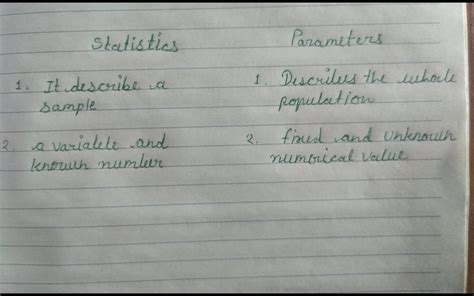 Statistics Parameters
1. It describe a 1. Describes the whole
sample population
2. a variable and 2. fixed and unknown
known number numerical value